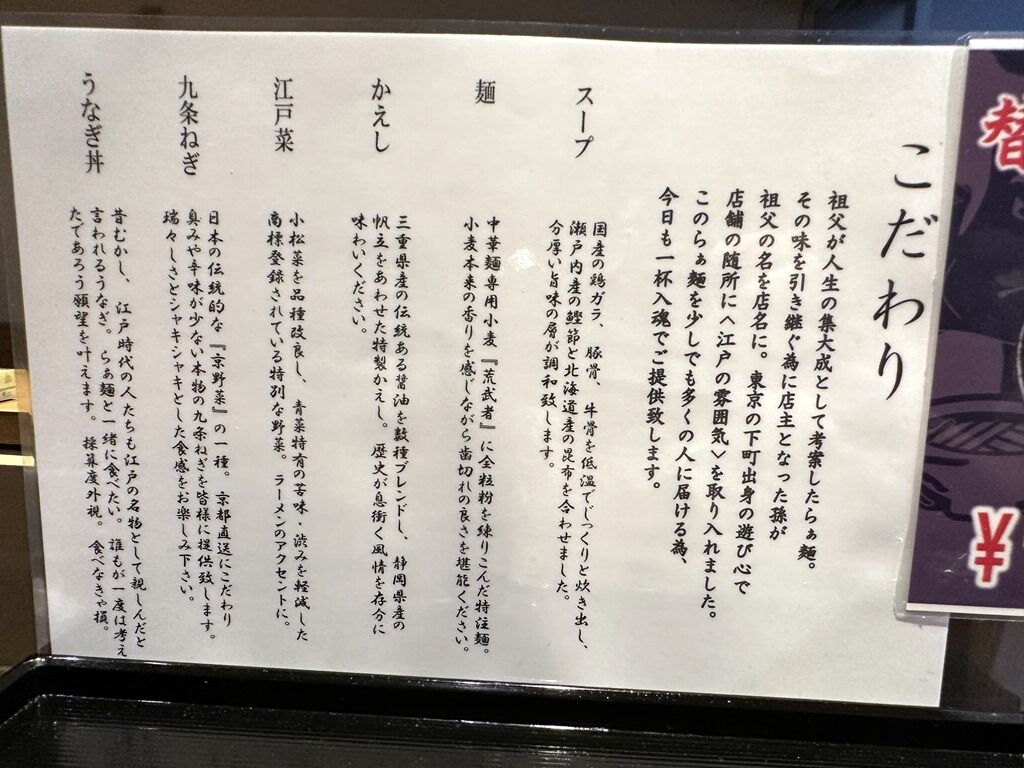 こだわり
祖父が人生の集大成として考案したらぁ麺。
その味を引き継ぐ為に店主となった孫が
祖父の名を店名に。東京の下町出身の遊び心で
店舗の随所に〈江戸の雰囲気〉を取り入れました。
このらぁ麺を少しでも多くの人に届ける為、
今日も一杯入魂でご提供致します。
スープ
国産の鶏ガラ、豚骨、牛骨を低温でじっくりと炊き出し、
瀬戸内産の鰹節と北海道産の昆布を合わせました。
分厚い旨味の層が調和致します。
麺
中華麺専用小麦『荒武者』に全粒粉を練りこんだ特注麺。
小麦本来の香りを感じながら歯切れの良さを堪能ください。
かえし
三重県産の伝統ある醤油を数種ブレンドし、静岡県産の
帆立をあわせた特製かえし。歴史が息衝く風情を存分に
味わいください。
江戸菜
小松菜を品種改良し、青菜特有の苦味・渋みを軽減した
商標登録されている特別な野菜。ラーメンのアクセントに。
九条ねぎ
日本の伝統的な『京野菜』の一種。京都直送にこだわり
臭みや辛味が少ない本物の九条ねぎを皆様に提供致します。
瑞々しさとシャキシャキとした食感をお楽しみ下さい。
うなぎ丼
昔むかし、江戸時代の人たちも江戸の名物として親しんだと
言われるうなぎ。らぁ麺と一緒に食べたい。誰もが一度は考え
たであろう願望を叶えます。採算度外視。食べなきゃ損。
替
¥